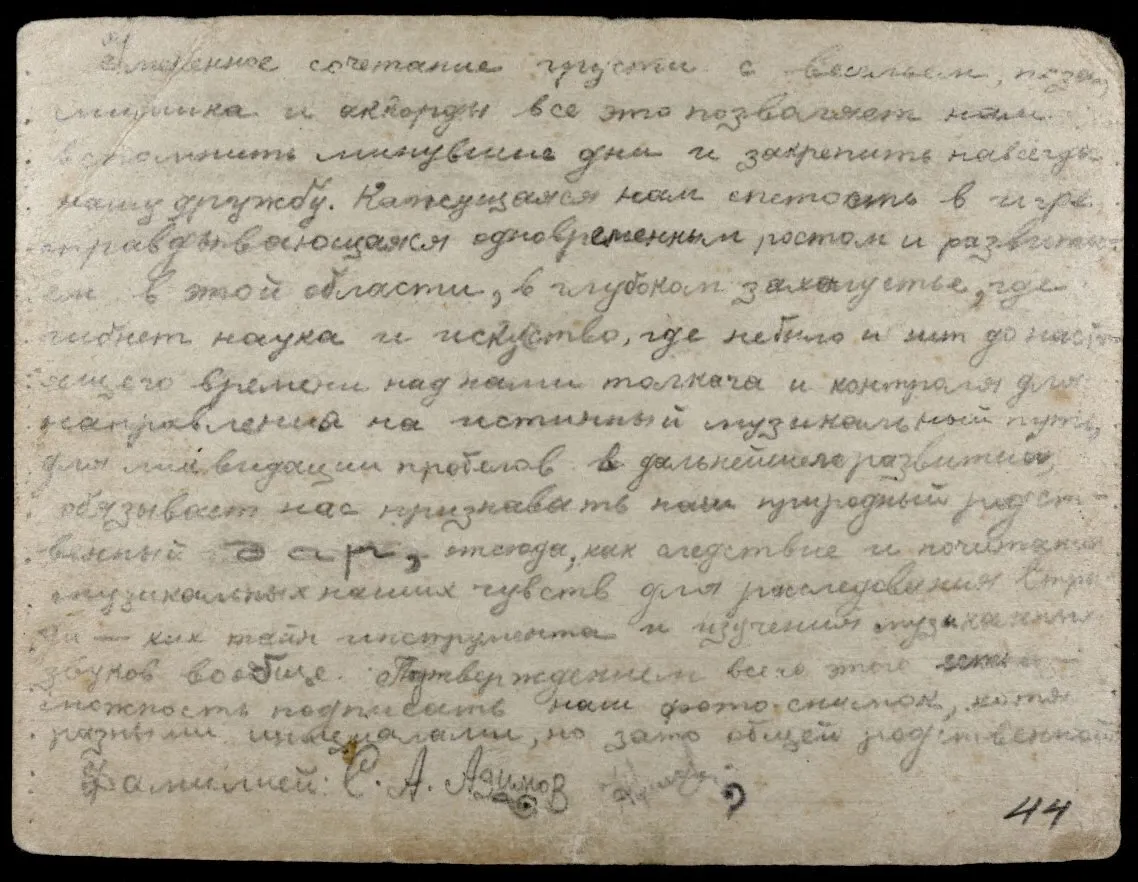 Умеренное сочетание грусти с весельем, поза,
мимика и аккорды все это позваляет нам
вспомнить минувшие дни и закрепить навсегда
нашу дружбу. Кажущаяся нам спетость в игре
оправдывающаяся одновременным ростом и развити-
ем в этой области, в глубоком захолустье, где
гибнет наука и искуство, где небыло и нет до наст-
ящего времени над нами толкача и контроля для
направления на истинный музикальный путь,
для ликвидации пробелов в дальнейшем развитии,
обязывает нас признавать наш природный родст-
венный дар, отсюда, как следствие и почитание
музикальных наших чувств для расследования
как тайн инструмента и изучения музикальных
звуков вообще. Подтверждением всего этого
можность подписать наш фото-снимок, хотя
разными инициалами, но зато общей родственной
Фамилией: С. А. Азимов
44